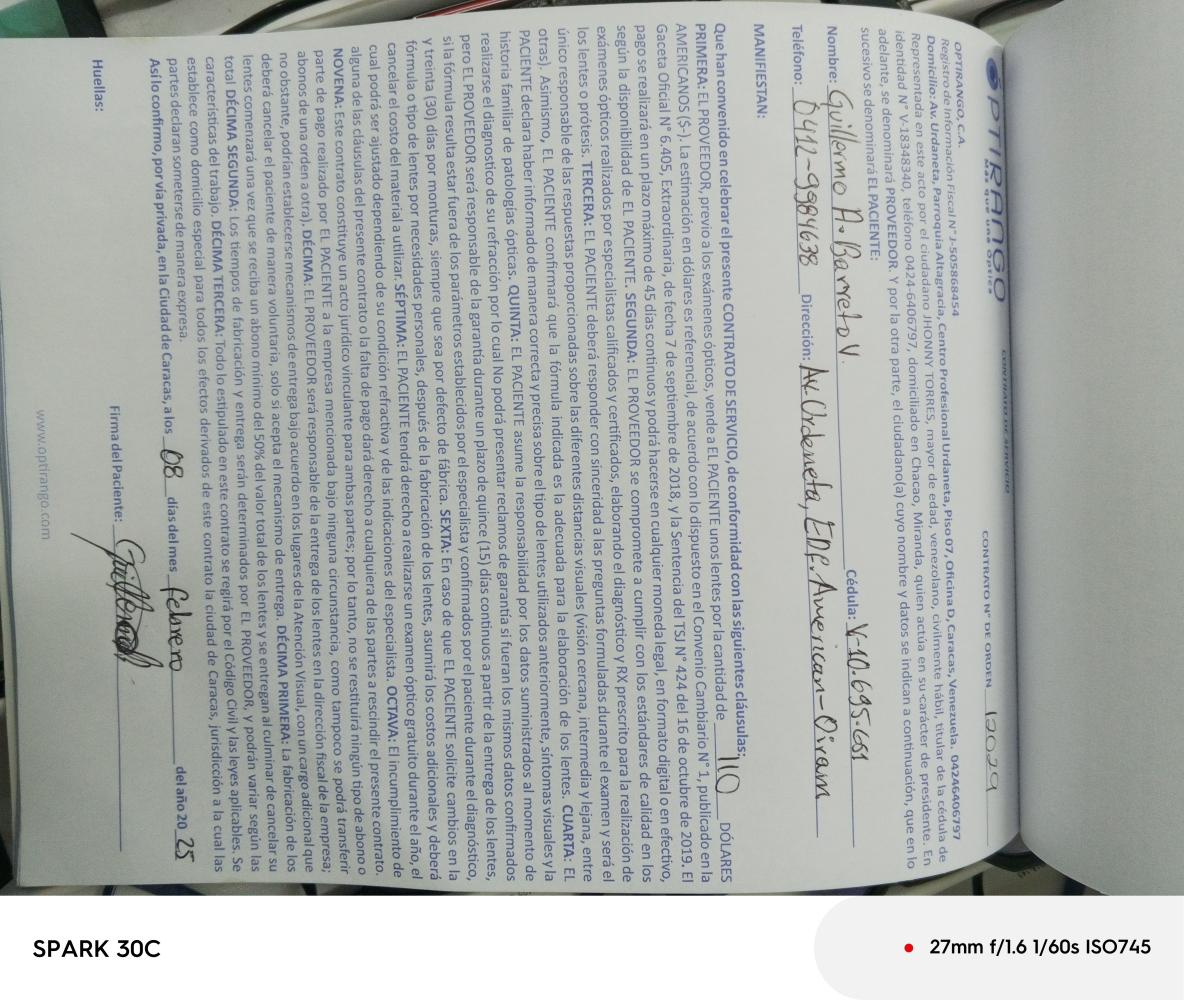 OPTIRANGO
Más que una óptica
CONTRATO DE SERVICIO
CONTRATO N° DE ORDEN 12029
OPTIRANGO, C.A.
Registro de Información Fiscal N° J-505868454
Domicilio: Av. Urdaneta, Parroquia Altagracia, Centro Profesional Urdaneta, Piso 07, Oficina D, Caracas, Venezuela. 04246406797
Representada en este acto por el ciudadano JHONNY TORRES, mayor de edad, venezolano, civilmente hábil, titular de la cédula de
identidad N° V-18348340, teléfono 0424-6406797, domiciliado en Chacao, Miranda, quien actúa en su carácter de presidente. En
adelante, se denominará PROVEEDOR. Y por la otra parte, el ciudadano(a) cuyo nombre y datos se indican a continuación, que en lo
sucesivo se denominará EL PACIENTE:
Nombre: Guillermo A. Barreto V. Cédula: V-10.695.651
Teléfono: 0412-9984638 Dirección: Av. Urdeneta, EDF. American-Oiram
MANIFIESTAN:
Que han convenido en celebrar el presente CONTRATO DE SERVICIO, de conformidad con las siguientes cláusulas:
PRIMERA: EL PROVEEDOR, previo a los exámenes ópticos, vende a EL PACIENTE unos lentes por la cantidad de 110 DÓLARES
AMERICANOS ($-). La estimación en dólares es referencial, de acuerdo con lo dispuesto en el Convenio Cambiario N° 1, publicado en la
Gaceta Oficial N° 6.405, Extraordinaria, de fecha 7 de septiembre de 2018, y la Sentencia del TSJ N° 424 del 16 de octubre de 2019. El
pago se realizará en un plazo máximo de 45 días continuos y podrá hacerse en cualquier moneda legal, en formato digital o en efectivo,
según la disponibilidad de EL PACIENTE. SEGUNDA: EL PROVEEDOR se compromete a cumplir con los estándares de calidad en los
exámenes ópticos realizados por especialistas calificados y certificados, elaborando el diagnóstico y RX prescrito para la realización de
los lentes o prótesis. TERCERA: EL PACIENTE deberá responder con sinceridad a las preguntas formuladas durante el examen y será el
único responsable de las respuestas proporcionadas sobre las diferentes distancias visuales (visión cercana, intermedia y lejana, entre
otras). Asimismo, EL PACIENTE confirmará que la fórmula indicada es la adecuada para la elaboración de los lentes. CUARTA: EL
PACIENTE declara haber informado de manera correcta y precisa sobre el tipo de lentes utilizados anteriormente, síntomas visuales y la
historia familiar de patologías ópticas. QUINTA: EL PACIENTE asume la responsabilidad por los datos suministrados al momento de
realizarse el diagnostico de su refracción por lo cual No podrá presentar reclamos de garantía si fueran los mismos datos confirmados
pero EL PROVEEDOR será responsable de la garantía durante un plazo de quince (15) días continuos a partir de la entrega de los lentes,
si la fórmula resulta estar fuera de los parámetros establecidos por el especialista y confirmados por el paciente durante el diagnóstico,
y treinta (30) días por monturas, siempre que sea por defecto de fábrica. SEXTA: En caso de que EL PACIENTE solicite cambios en la
fórmula o tipo de lentes por necesidades personales, después de la fabricación de los lentes, asumirá los costos adicionales y deberá
cancelar el costo del material a utilizar. SÉPTIMA: EL PACIENTE tendrá derecho a realizarse un examen óptico gratuito durante el año, el
cual podrá ser ajustado dependiendo de su condición refractiva y de las indicaciones del especialista. OCTAVA: El incumplimiento de
alguna de las cláusulas del presente contrato o la falta de pago dará derecho a cualquiera de las partes a rescindir el presente contrato.
NOVENA: Este contrato constituye un acto jurídico vinculante para ambas partes; por lo tanto, no se restituirá ningún tipo de abono o
parte de pago realizado por EL PACIENTE a la empresa mencionada bajo ninguna circunstancia, como tampoco se podrá transferir
abonos de una orden a otra). DÉCIMA: EL PROVEEDOR será responsable de la entrega de los lentes en la dirección fiscal de la empresa;
no obstante, podrían establecerse mecanismos de entrega bajo acuerdo en los lugares de la Atención Visual, con un cargo adicional que
deberá cancelar el paciente de manera voluntaria, solo si acepta el mecanismo de entrega. DÉCIMA PRIMERA: La fabricación de los
lentes comenzará una vez que se reciba un abono mínimo del 50% del valor total de los lentes y se entregan al culminar de cancelar su
total DÉCIMA SEGUNDA: Los tiempos de fabricación y entrega serán determinados por EL PROVEEDOR, y podrán variar según las
características del trabajo. DÉCIMA TERCERA: Todo lo estipulado en este contrato se regirá por el Código Civil y las leyes aplicables. Se
establece como domicilio especial para todos los efectos derivados de este contrato la ciudad de Caracas, jurisdicción a la cual las
partes declaran someterse de manera expresa.
Así lo confirmo, por vía privada, en la Ciudad de Caracas, a los 08 días del mes febrero del año 20 25
Huellas:
Firma del Paciente:
www.optirango.com
SPARK 30C
27mm f/1.6 1/60s ISO745